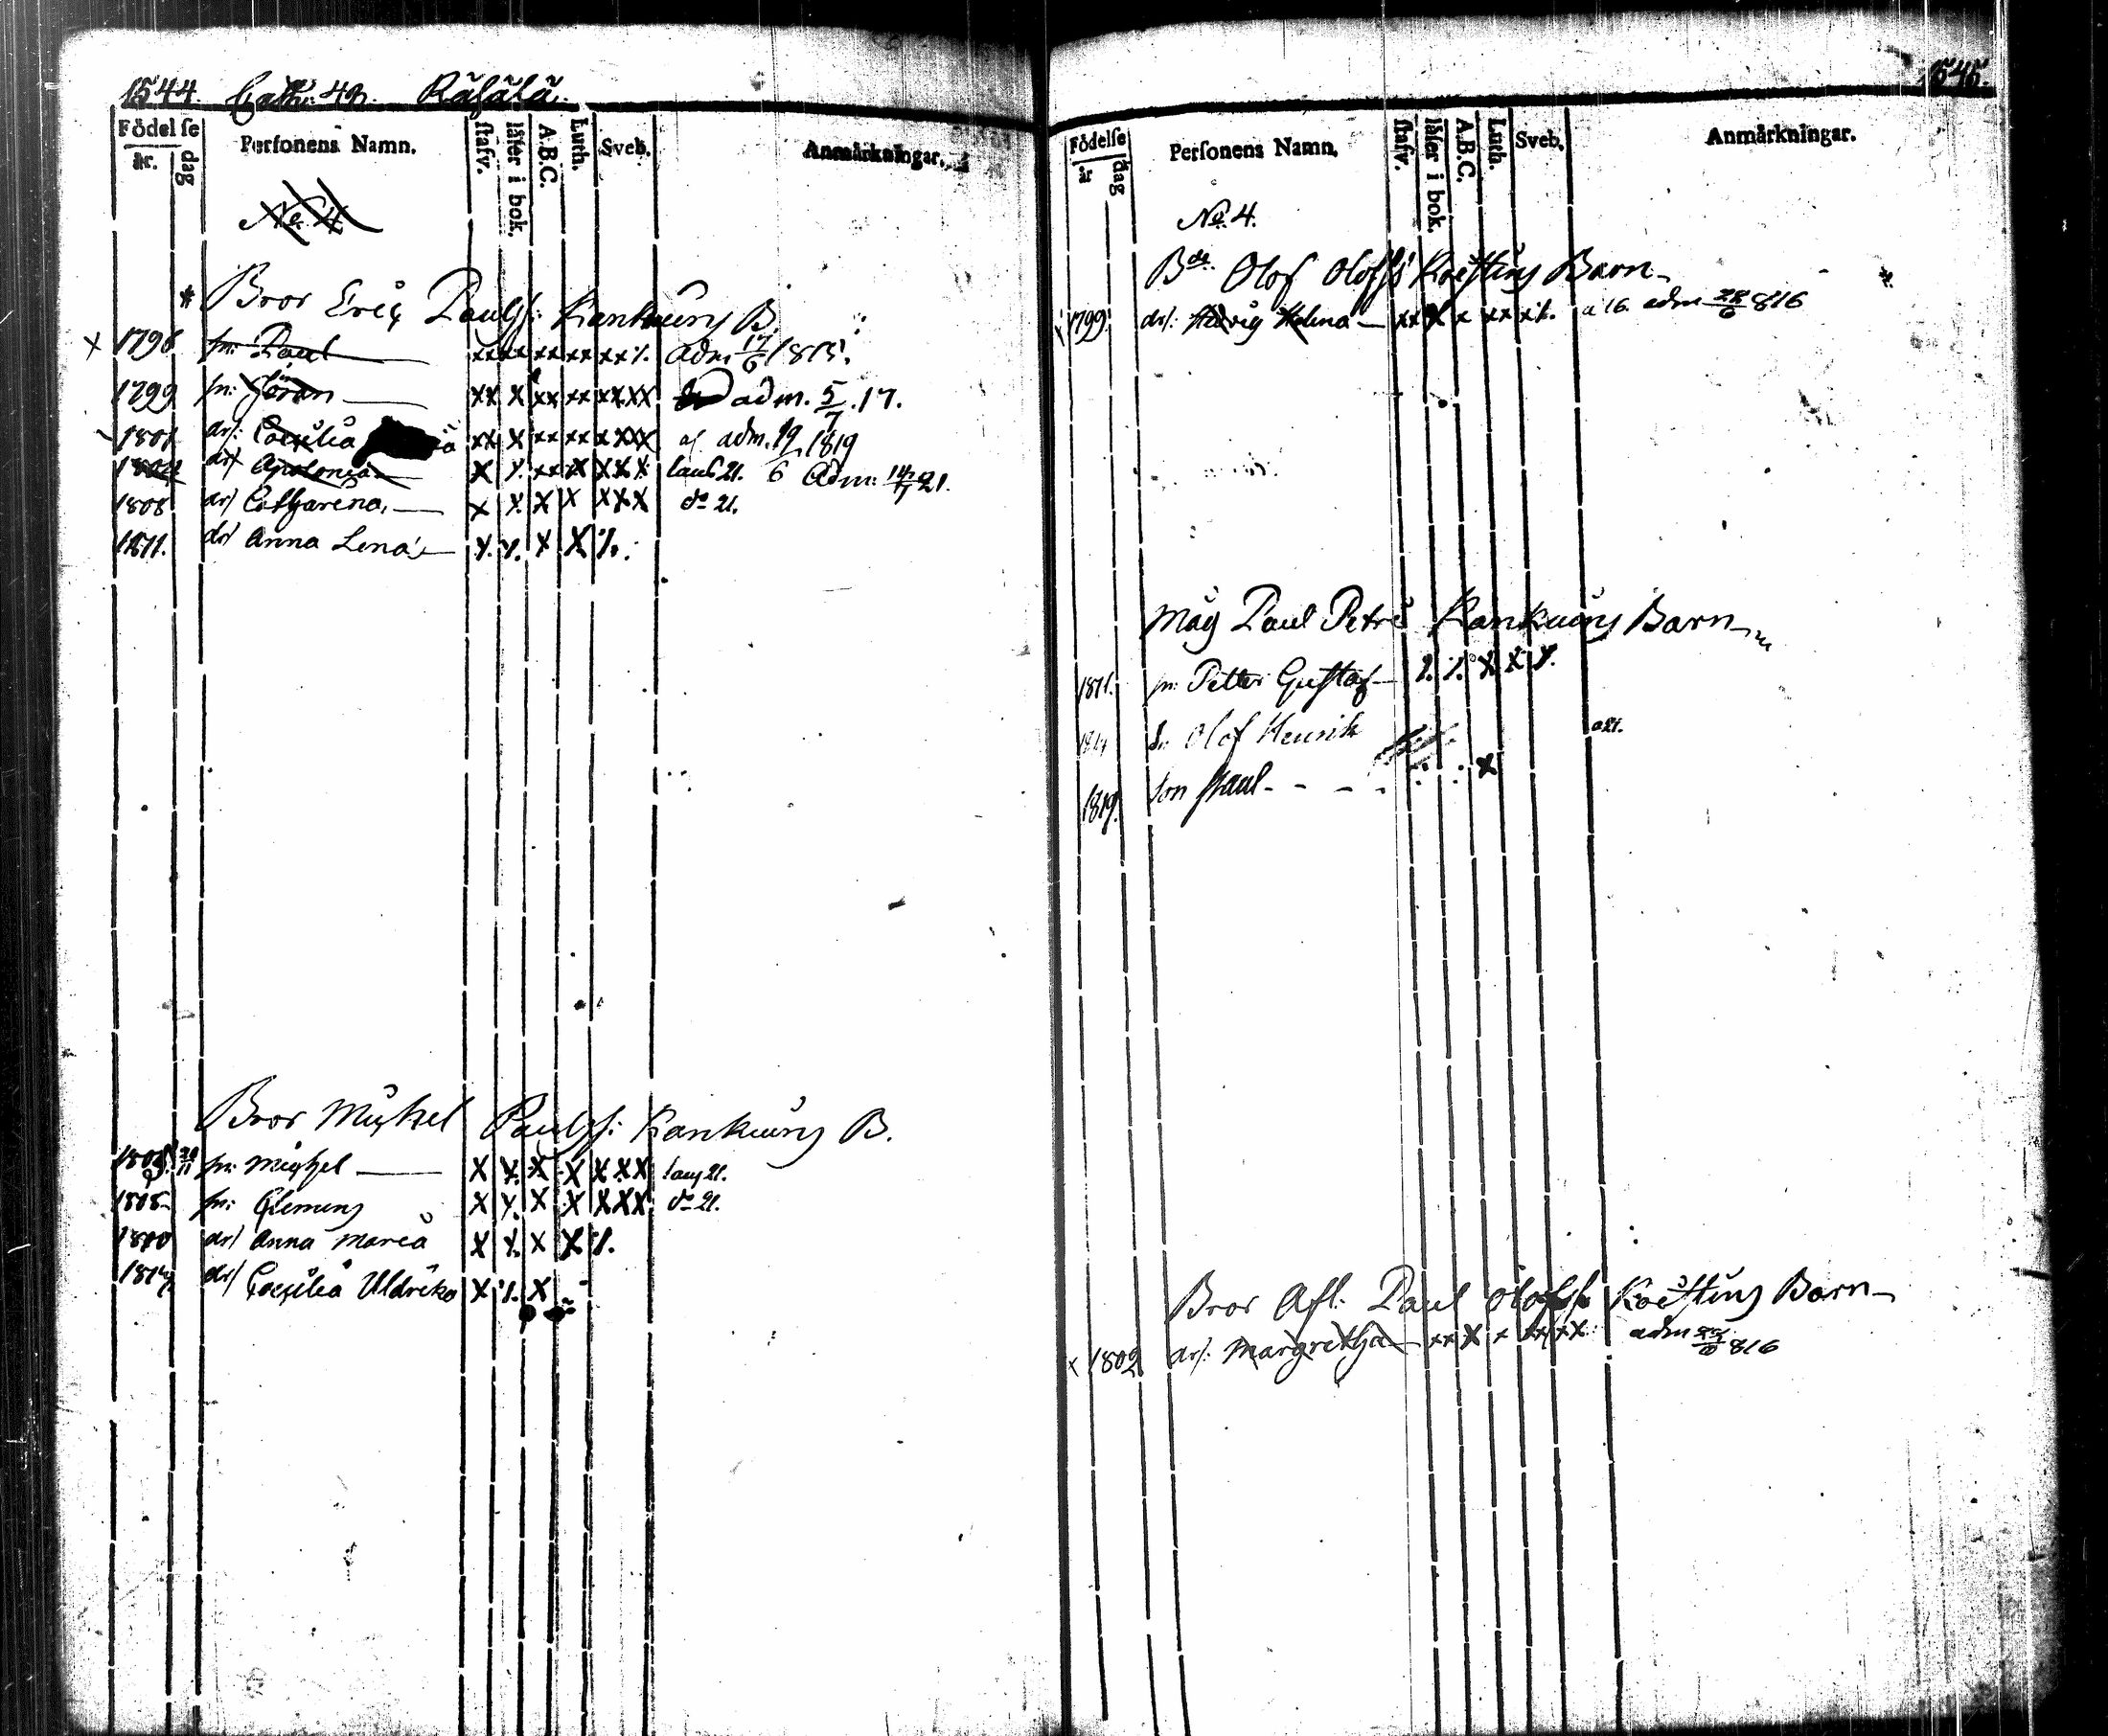 1544. Cath: 4n. Räfälä.
Födelſe
år. dag
Perſonens Namn.
ſtafv.
läſer i bok.
A.B.C.
Luth.
Sveb.
Anmärkningar.
No 4
Bror Eric Paulſſ: Kankuny B.
1796 ſn: Paul xx xx xx xx xx adm 17/6 1815.
1799 ſn: Jöran xx x xx xx xxxx adm. 5/7. 17.
1801 dr: Cæcilia xx x xx xx xxxx adm. 19/6 1819
dr Apolonia x x xx x xxx laud 21. Adm: 14/7 21.
1808 dr Catharina x x x x xxx do 21.
1811. dr Anna Lena x x x x
Bror Michel Paulſſ: Kankuny B.
ſn: Michel x x x x xxx laud 21.
1808 ſn: Clemens x x x x xxx do 21.
1810 dr Anna Maria x x x x
dr Cæcilia Uldrika x x
1545.
Födelſe
år dag
Perſonens Namn.
ſtafv.
läſer i bok.
A.B.C.
Luth.
Sveb.
Anmärkningar.
No 4.
Bde Olof Olofſſ Barn
1799 dr: Hedvig Helena xx x x xx x a 16. adm 816
Måg Paul Petrs Kankuny Barn
1811. ſn: Petter Guſtaf x x x
Olof Henrik a21.
1819. ſon Paul x
Bror Afl: Paul Olofſſ Barn
x 1802 dr: Margretha xx x x xx xx adm 816